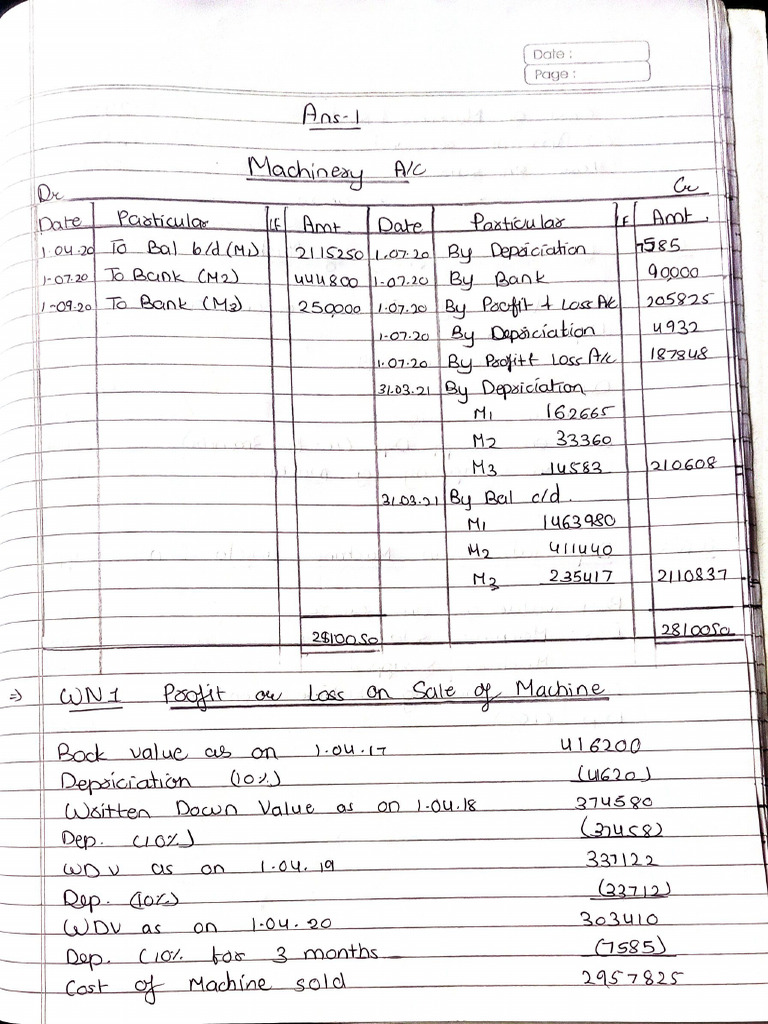 Date :
Page :
Ans-1
Machinery A/C
Dr Cr
Date Particular LF Amt Date Particular LF Amt.
1.04.20 To Bal b/d (M1) 2115250 1.07.20 By Depriciation 7585
1-07.20 To Bank (M2) 444800 1-07.20 By Bank 90000
1-09.20 To Bank (M3) 250000 1.07.20 By Profit & Loss A/c 205825
1.07.20 By Depriciation 4932
1.07.20 By Profit & Loss A/c 187848
31.03.21 By Depriciation
M1 162665
M2 33360
M3 14583 210608
31.03.21 By Bal c/d.
M1 1463980
M2 411440
M3 235417 2110837
2810050 2810050
⇒ WN1 Profit or Loss on Sale of Machine
Book value as on 1.04.17 416200
Depriciation (10%) (41620)
Written Down Value as on 1.04.18 374580
Dep. (10%) (37458)
WDV as on 1.04.19 337122
Dep. (10%) (33712)
WDV as on 1.04.20 303410
Dep. (10% for 3 months (7585)
Cost of Machine sold 2957825